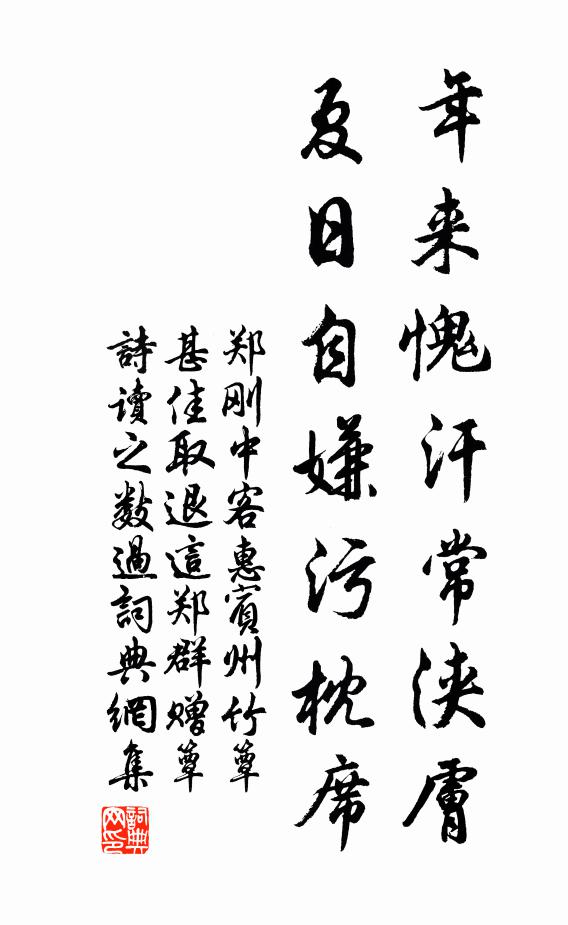 年来愧汗常浃膚
夏日自嫌污枕席
郑刚中客惠賓州竹簟
甚佳取退這郑群赠簟
詩讀之数過詞典網集
詞典網印